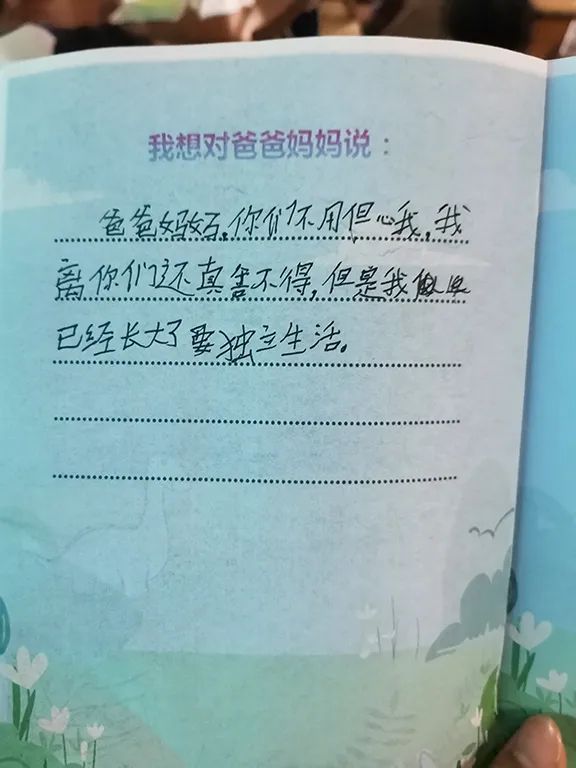 我想对爸爸妈妈说：
爸爸妈妈，你们不用但心我，我
离你们还真舍不得，但是我
已经长大了要独立生活。